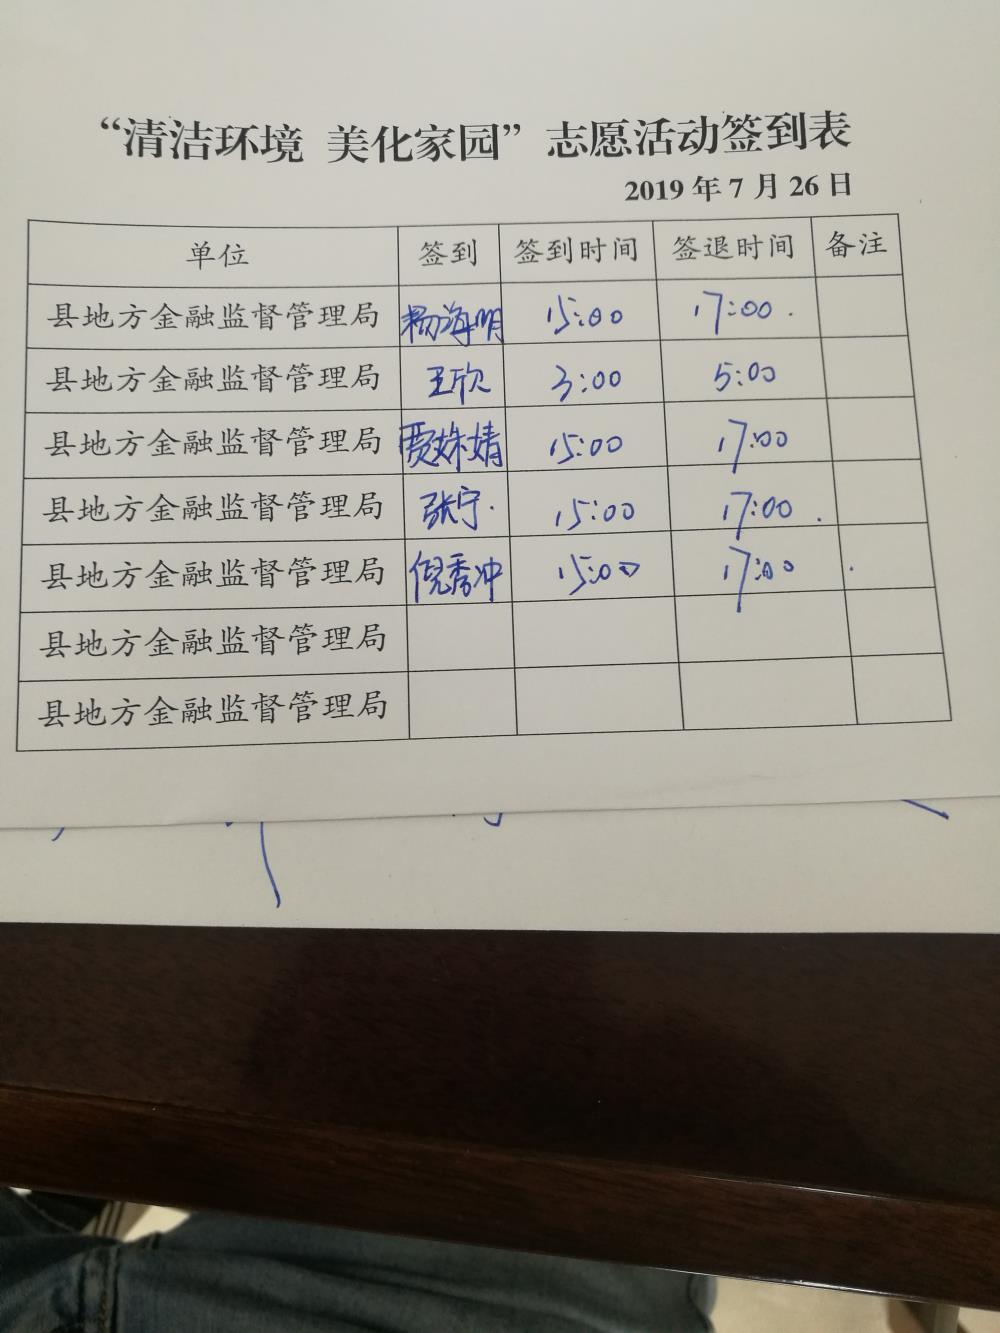 “清洁环境 美化家园”志愿活动签到表
2019年7月26日
单位 签到 签到时间 签退时间 备注
县地方金融监督管理局 杨海明 15:00 17:00.
县地方金融监督管理局 王欣 3:00 5:00
县地方金融监督管理局 贾姝婧 15:00 17:00
县地方金融监督管理局 张宁. 15:00 17:00.
县地方金融监督管理局 倪秀冲 15:00 17:00
县地方金融监督管理局
县地方金融监督管理局